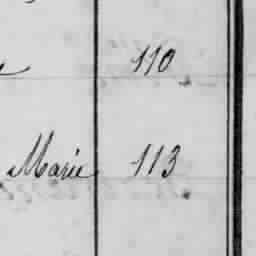 110
Marie 113